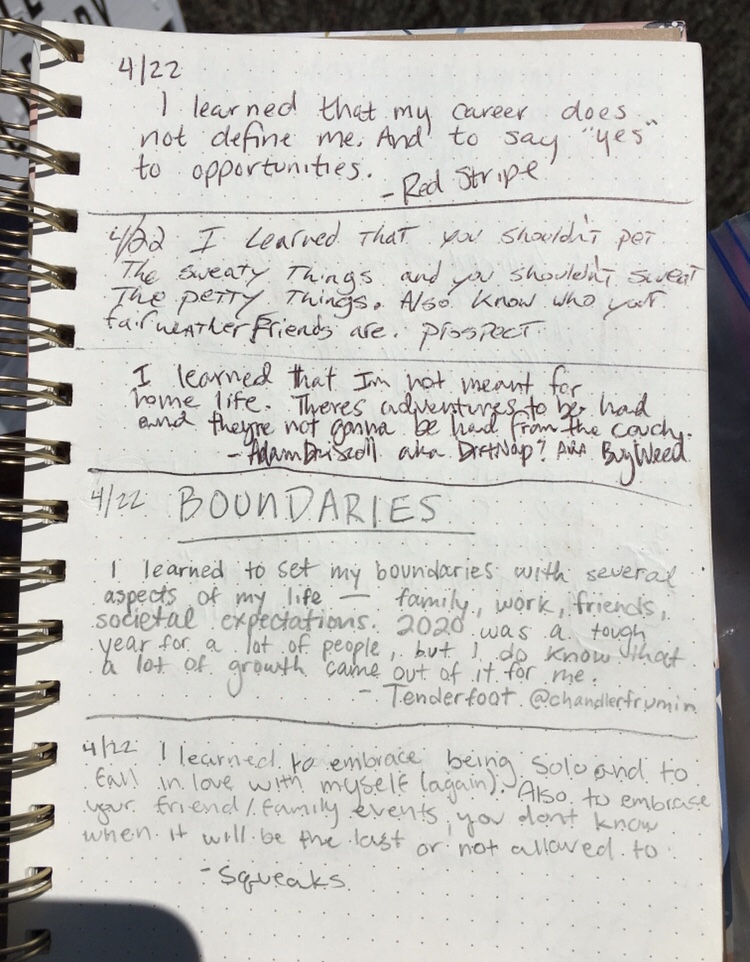 4/22
I learned that my career does
not define me. And to say "yes"
to opportunities.
- Red Stripe
4/22 I Learned That you shouldn't pet
The sweaty Things and you shouldn't sweat
The petty Things. Also know who your
fairweather friends are. Prospect
I learned that Im not meant for
home life. Theres adventures to be had
and theyre not gonna be had from the couch.
- Adam Driscoll aka DirtNap? AKA BugWeed
4/22 BOUNDARIES
I learned to set my boundaries with several
aspects of my life — family, work, friends,
societal expectations. 2020 was a tough
year for a lot of people, but I do know that
a lot of growth came out of it for me.
- Tenderfoot @chandlerfrumin
4/22 I learned to embrace being solo and to
fall in love with myself (again). Also to embrace
your friend/family events, you dont know
when it will be the last or not allowed to
- Squeaks